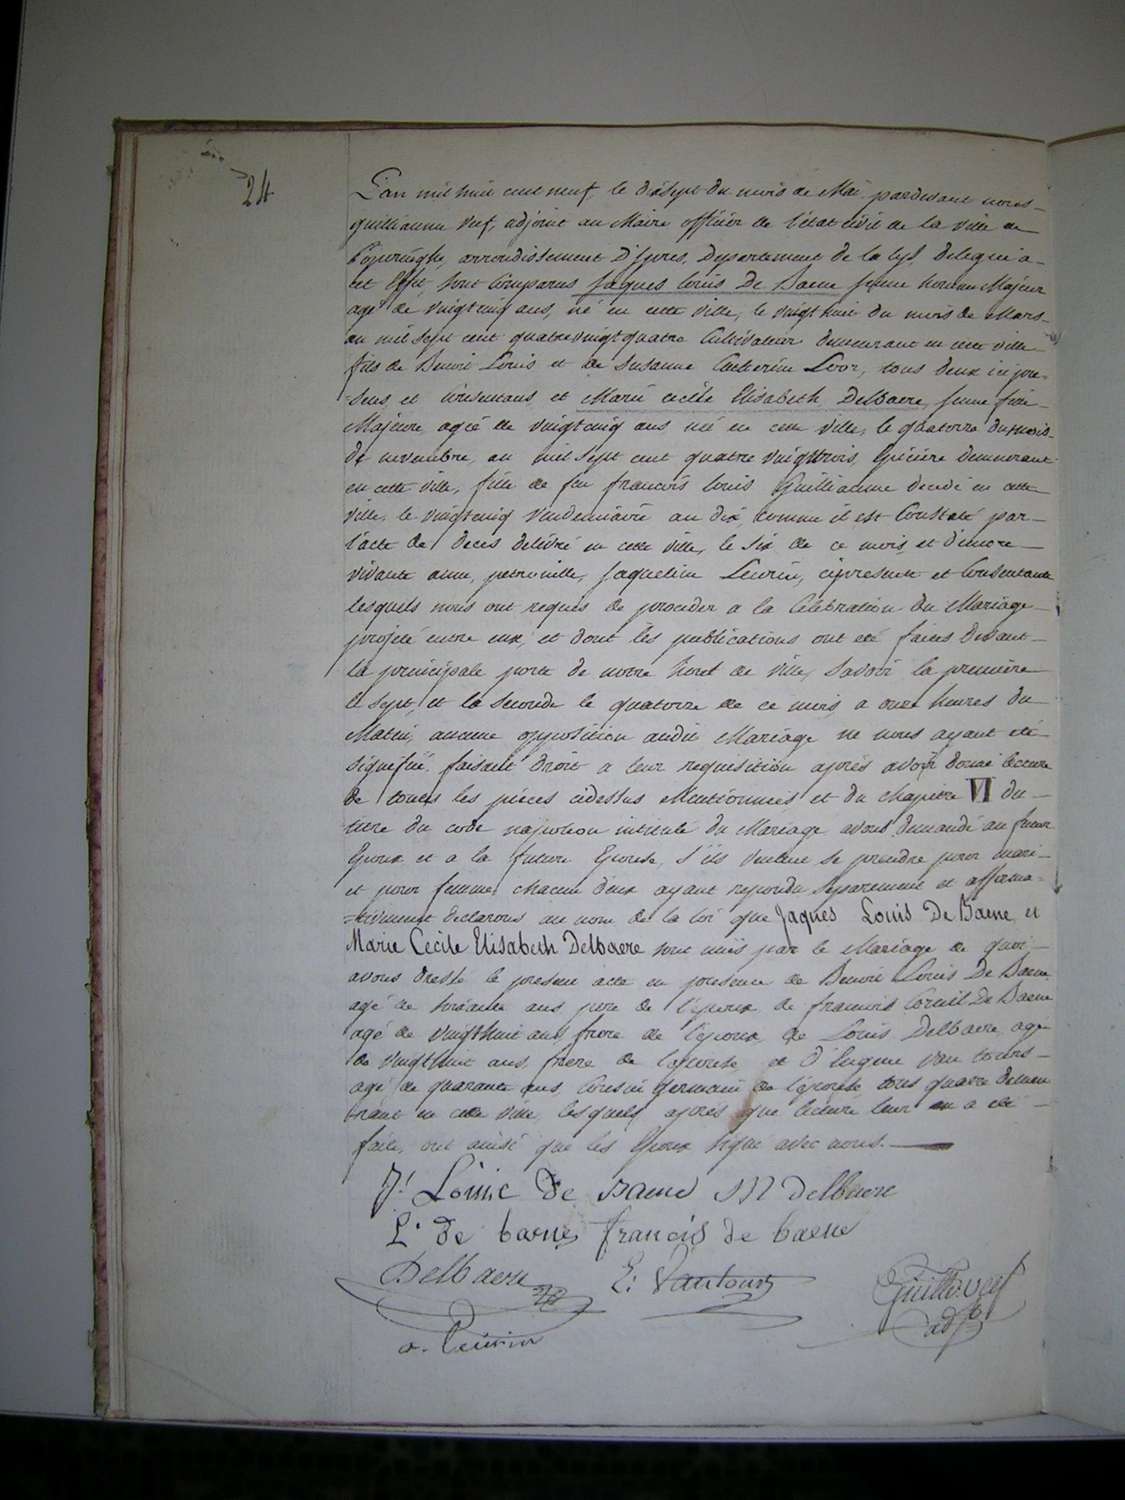 24
L'an mil huit cent neuf, le dixsept du mois de Mai pardevant nous
guilliaume Veuf, adjoint au Maire officier de l'état civil de la ville de
Poperinghe, arrondissement d'Ypres, Departement de la Lys, delegué a
cet effet, sont comparus Jaques Louis De Baene jeune homme Majeur
agé de vingtcinq ans, né en cette ville, le vingt huit du mois de Mars
an mil sept cent quatrevingt quatre Cultivateur demeurant en cette ville
fils de Benoit Louis et de Susanne Catherine Loor, tous deux ici pre-
sens et consentans, et Marie cecile Elisabeth Delbaere, jeune fille
Majeure, agée de vingtcinq ans née en cette ville, le quatorze du mois
de novembre, an mil sept cent quatre vingttrois, Epiciere demeurant
en cette ville, fille de feu francois louis Guilliaume decedé en cette
ville, le vingtcinq Vendemiaire an dix, comme il est Constaté par
l'acte de deces delivré en cette ville, le six de ce mois, et d'encore
vivante anne, petronille, Jaqueline Leurin, cipresente et Consentante
lesquels nous ont requis de proceder a la Célébration du Mariage
projeté entre eux, et dont les publications ont eté faites devant
la principale porte de notre hotel de ville, Savoir la premiere
le sept, et la seconde le quatorze de ce mois a onze heures du
Matin, aucune opposition audit Mariage ne nous ayant eté
signifiié. faisant droit a leur requisition après avoir donné lecture
de toutes les pièces cidessus Mentionnées et du chapitre VI du
titre du code napoleon intitulé du Mariage avons demandé au futur
Epoux et a la future Epouse, s'ils veulent se prendre pour mari
et pour femme, chacun d'eux ayant repondu Separement et affirma-
=tivement declarons au nom de la loi que Jaques Louis De Baene et
Marie Cecile Elisabeth Delbaere sont unis par le Mariage de quoi
avons dressé le present acte en presence de Benoit Louis De Baene
agé de soixante ans pere de l'epoux de francois Corneil De Baene
agé de vingthuit ans, frere de l'epoux, de Louis Delbaere, agé
de vingthuit ans, frere de l'epouse, et d'Eugene van
agé de quarante ans Cousin germain de l'epouse tous quatre demeu
rant en cette ville, lesquels après que lecture leur en a eté
faite, ont ainsi que les Epoux signé avec nous.
J: Louis de Baene M Delbaere
L. de baene francis de baene
Delbaere E:
a. Leurin
Guill: veuf
adjt